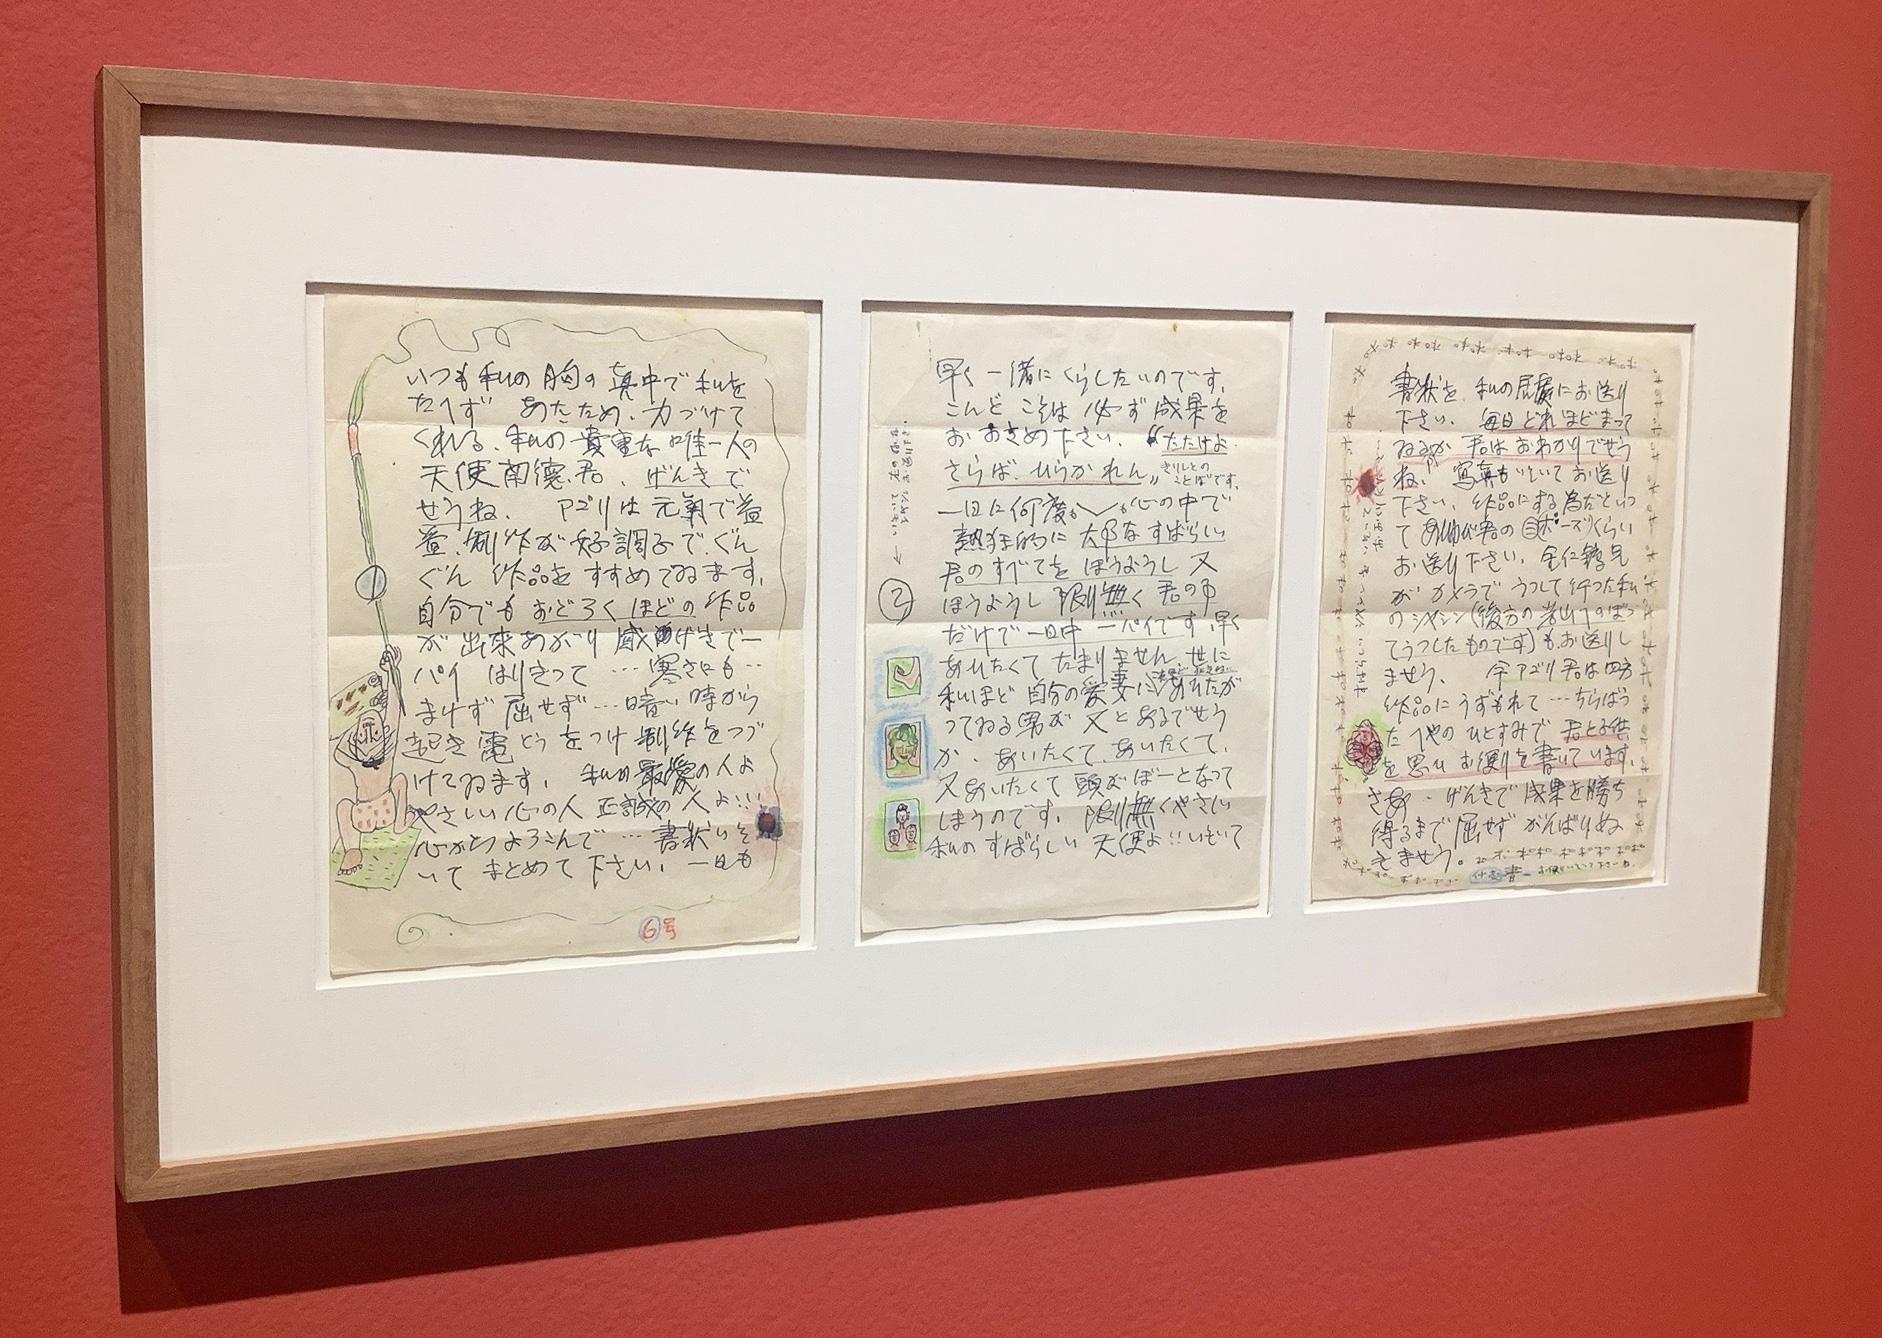 いつも私の胸の真中で私を
たへず あたため、力づけて
くれる、私の貴重な唯一人の
天使南徳君、げんきで
せうね、 アゴリは元氣で益
益、制作が好調子で、ぐん
ぐん 作品をすすめてゐます、
自分でもおどろくほどの作品
が出来あがり 感げきで一
パイ はりきって…寒さにも…
まけず屈せず…暗い時から
起き電とうをつけ制作をつづ
けてゐます、 私の最愛の人よ
やさしい心の人 正誠の人よ!!!
心からよろこんで…書状いそ
いでまとめて下さい、一日も
6号
早く一緒にくらしたいのです、
こんどこそは必ず成果を
おおさめ下さい、“たたけよ
さらば、ひらかれん〃
きりしとの
ことばです。
一日に何度も〱心の中で
熱狂的に 大好なすばらしい
君のすべてをほうようし又
ほうようし 限り無く君の事
だけで一日中一パイです、早く
あひたくてたまりません、世に
私ほど自分の愛妻にあひたが
ってゐる男が又とあるでせう
か、あいたくて、あいたくて、
又あいたくて頭がぼーとなって
しまうのです、限り無くやさしい
私のすばらしい 天使よ!!いそいで
2
書状を 私の居處にお送り
下さい、 毎日どれほどまって
ゐるか 君はおわかりでせう
ね、 写真もいそいでお送り
下さい、作品にする為だといっ
て 君のポーズくらい
お送り下さい、 兄
がカメラでうつして行った私
のシャシン(後方の岩山へのぼっ
てうつしたものです)もお送りし
ませう、 今アゴリ君は四方
作品にうずもれて…ちらばっ
たへやのひとすみで、君と子供
を思ひお便りを書いています、
さあ…げんきで成果を勝ち
得るまで屈せずがんばりぬ
きませう。